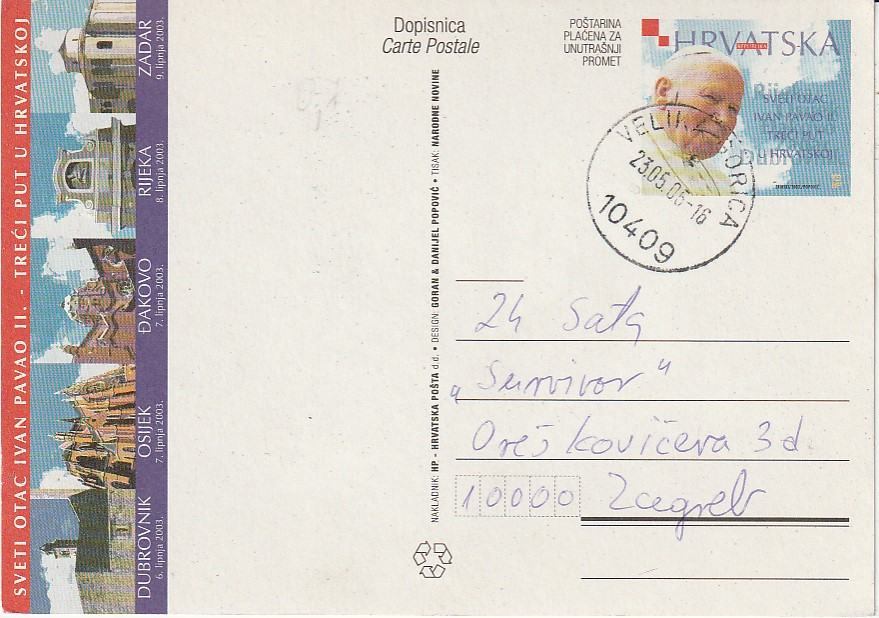 SVETI OTAC IVAN PAVAO II. - TREĆI PUT U HRVATSKOJ
ZADAR
9. lipnja 2003.
RIJEKA
8. lipnja 2003.
ĐAKOVO
7. lipnja 2003.
OSIJEK
7. lipnja 2003.
DUBROVNIK
6. lipnja 2003.
Dopisnica
Carte Postale
NAKLADNIK: HP - HRVATSKA POŠTA d.d. • DESIGN: GORAN & DANIJEL POPOVIĆ • TISAK: NARODNE NOVINE
POŠTARINA
PLAĆENA ZA
UNUTRAŠNJI
PROMET
HRVATSKA
REPUBLIKA
SVETI OTAC
IVAN PAVAO II.
TREĆI PUT
U HRVATSKOJ
VELIKA GORICA
23.05.06-16
10409
24 Sata
„Survivor"
Oreškovićeva 3d.
10000 Zagreb